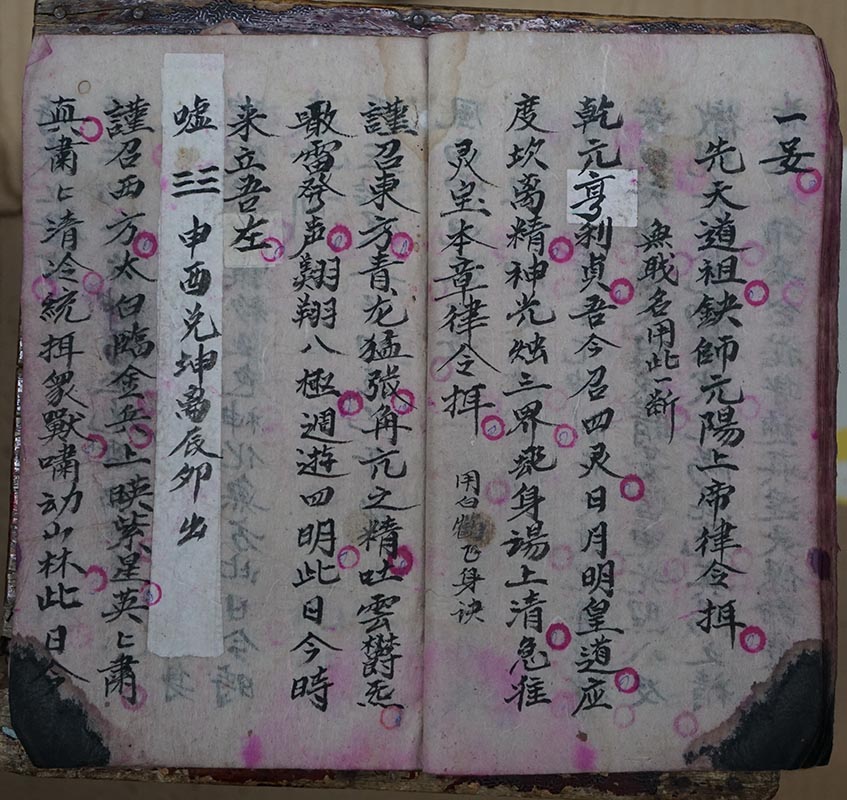 一妥
先天道祖鈌師元陽上帝律令揖
無戝名用此一断
乾元亨利貞吾今召四灵日月明皇道应
度坎离精神光燭三界飛身謁上清急准
灵宝本章律令揖
用白鶴飞身诀
謹召東方青龙猛張角亢之精吐雲欝炁
噉雷發声翔翔八極週遊四明此日今時
来立吾左
嘘 三三 申酉兑坤离辰卯出
謹召西方太白臨金兵上暎紫星英〻肅
真肅〻清冷統揖衆獸嘯动山林此日今